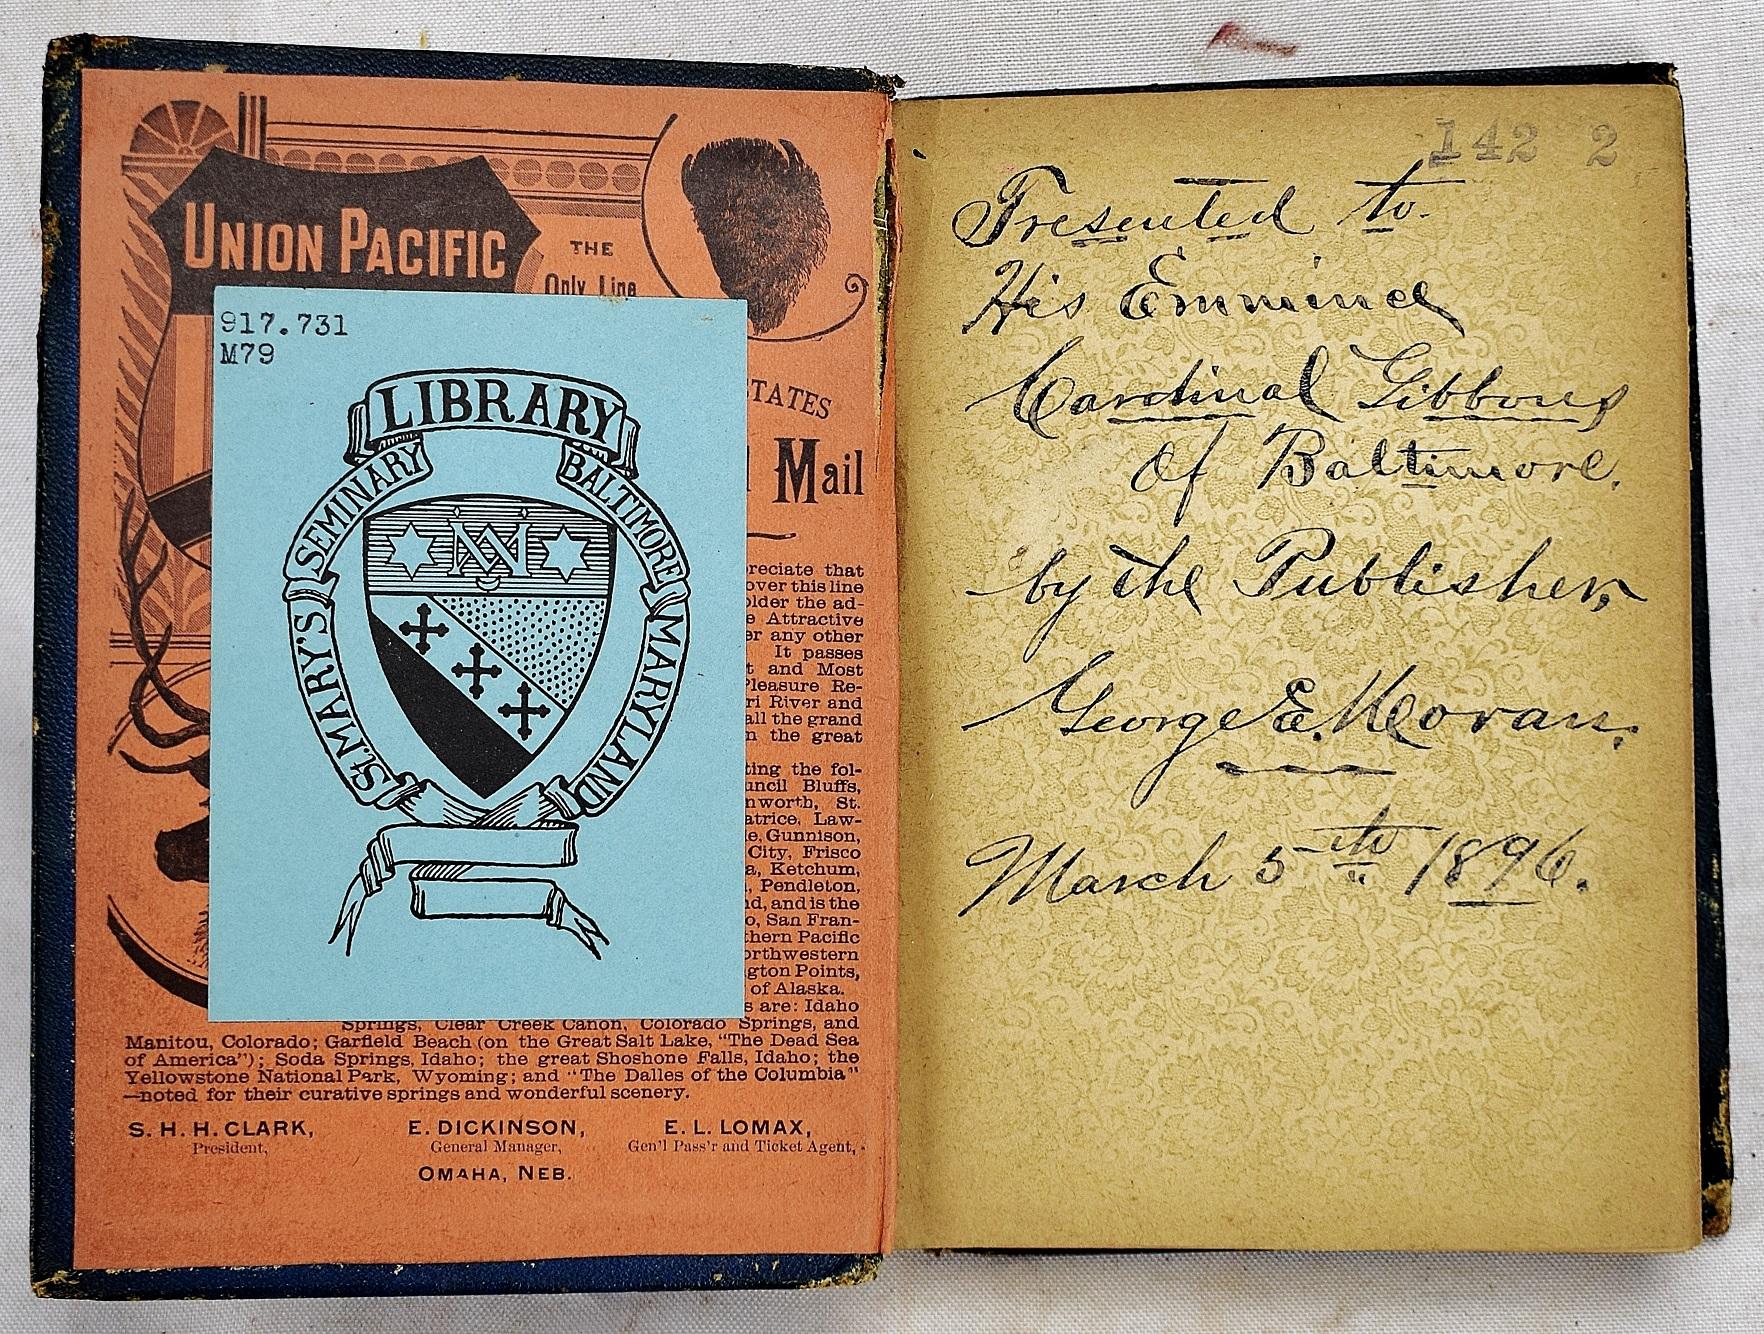 UNION PACIFIC
THE
Only Line
917.731
M79
LIBRARY
ST. MARY'S SEMINARY
BALTIMORE MARYLAND
TATES
Mail
reciate that
over this line
older the ad-
e Attractive
er any other
It passes
t and Most
Pleasure Re-
ri River and
all the grand
n the great
ting the fol-
uncil Bluffs,
nworth, St.
atrice, Law-
e, Gunnison,
City, Frisco
a, Ketchum,
, Pendleton,
nd, and is the
o, San Fran-
thern Pacific
orthwestern
gton Points,
of Alaska.
s are: Idaho
Springs, Clear Creek Canon, Colorado Springs, and
Manitou, Colorado; Garfield Beach (on the Great Salt Lake, "The Dead Sea
of America"); Soda Springs, Idaho; the great Shoshone Falls, Idaho; the
Yellowstone National Park, Wyoming; and "The Dalles of the Columbia"
—noted for their curative springs and wonderful scenery.
S. H. H. CLARK, E. DICKINSON, E. L. LOMAX,
President, General Manager, Gen'l Pass'r and Ticket Agent,
OMAHA, NEB.
142 2
Presented to
His Emmince
Cardinal Gibbons
of Baltimore.
by the Publisher,
George E. Moran.
March 5th 1896.